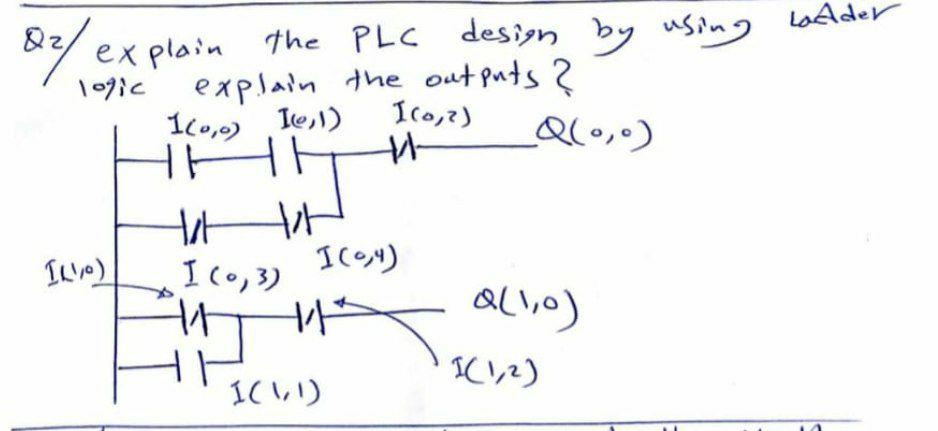 Q2/ explain the PLC design by using Ladder
logic explain the outputs?
I(0,0) I(0,1) I(0,2) Q(0,0)
I(0,4)
I(1,0) I(0,3)
Q(1,0)
I(1,2)
I(1,1)